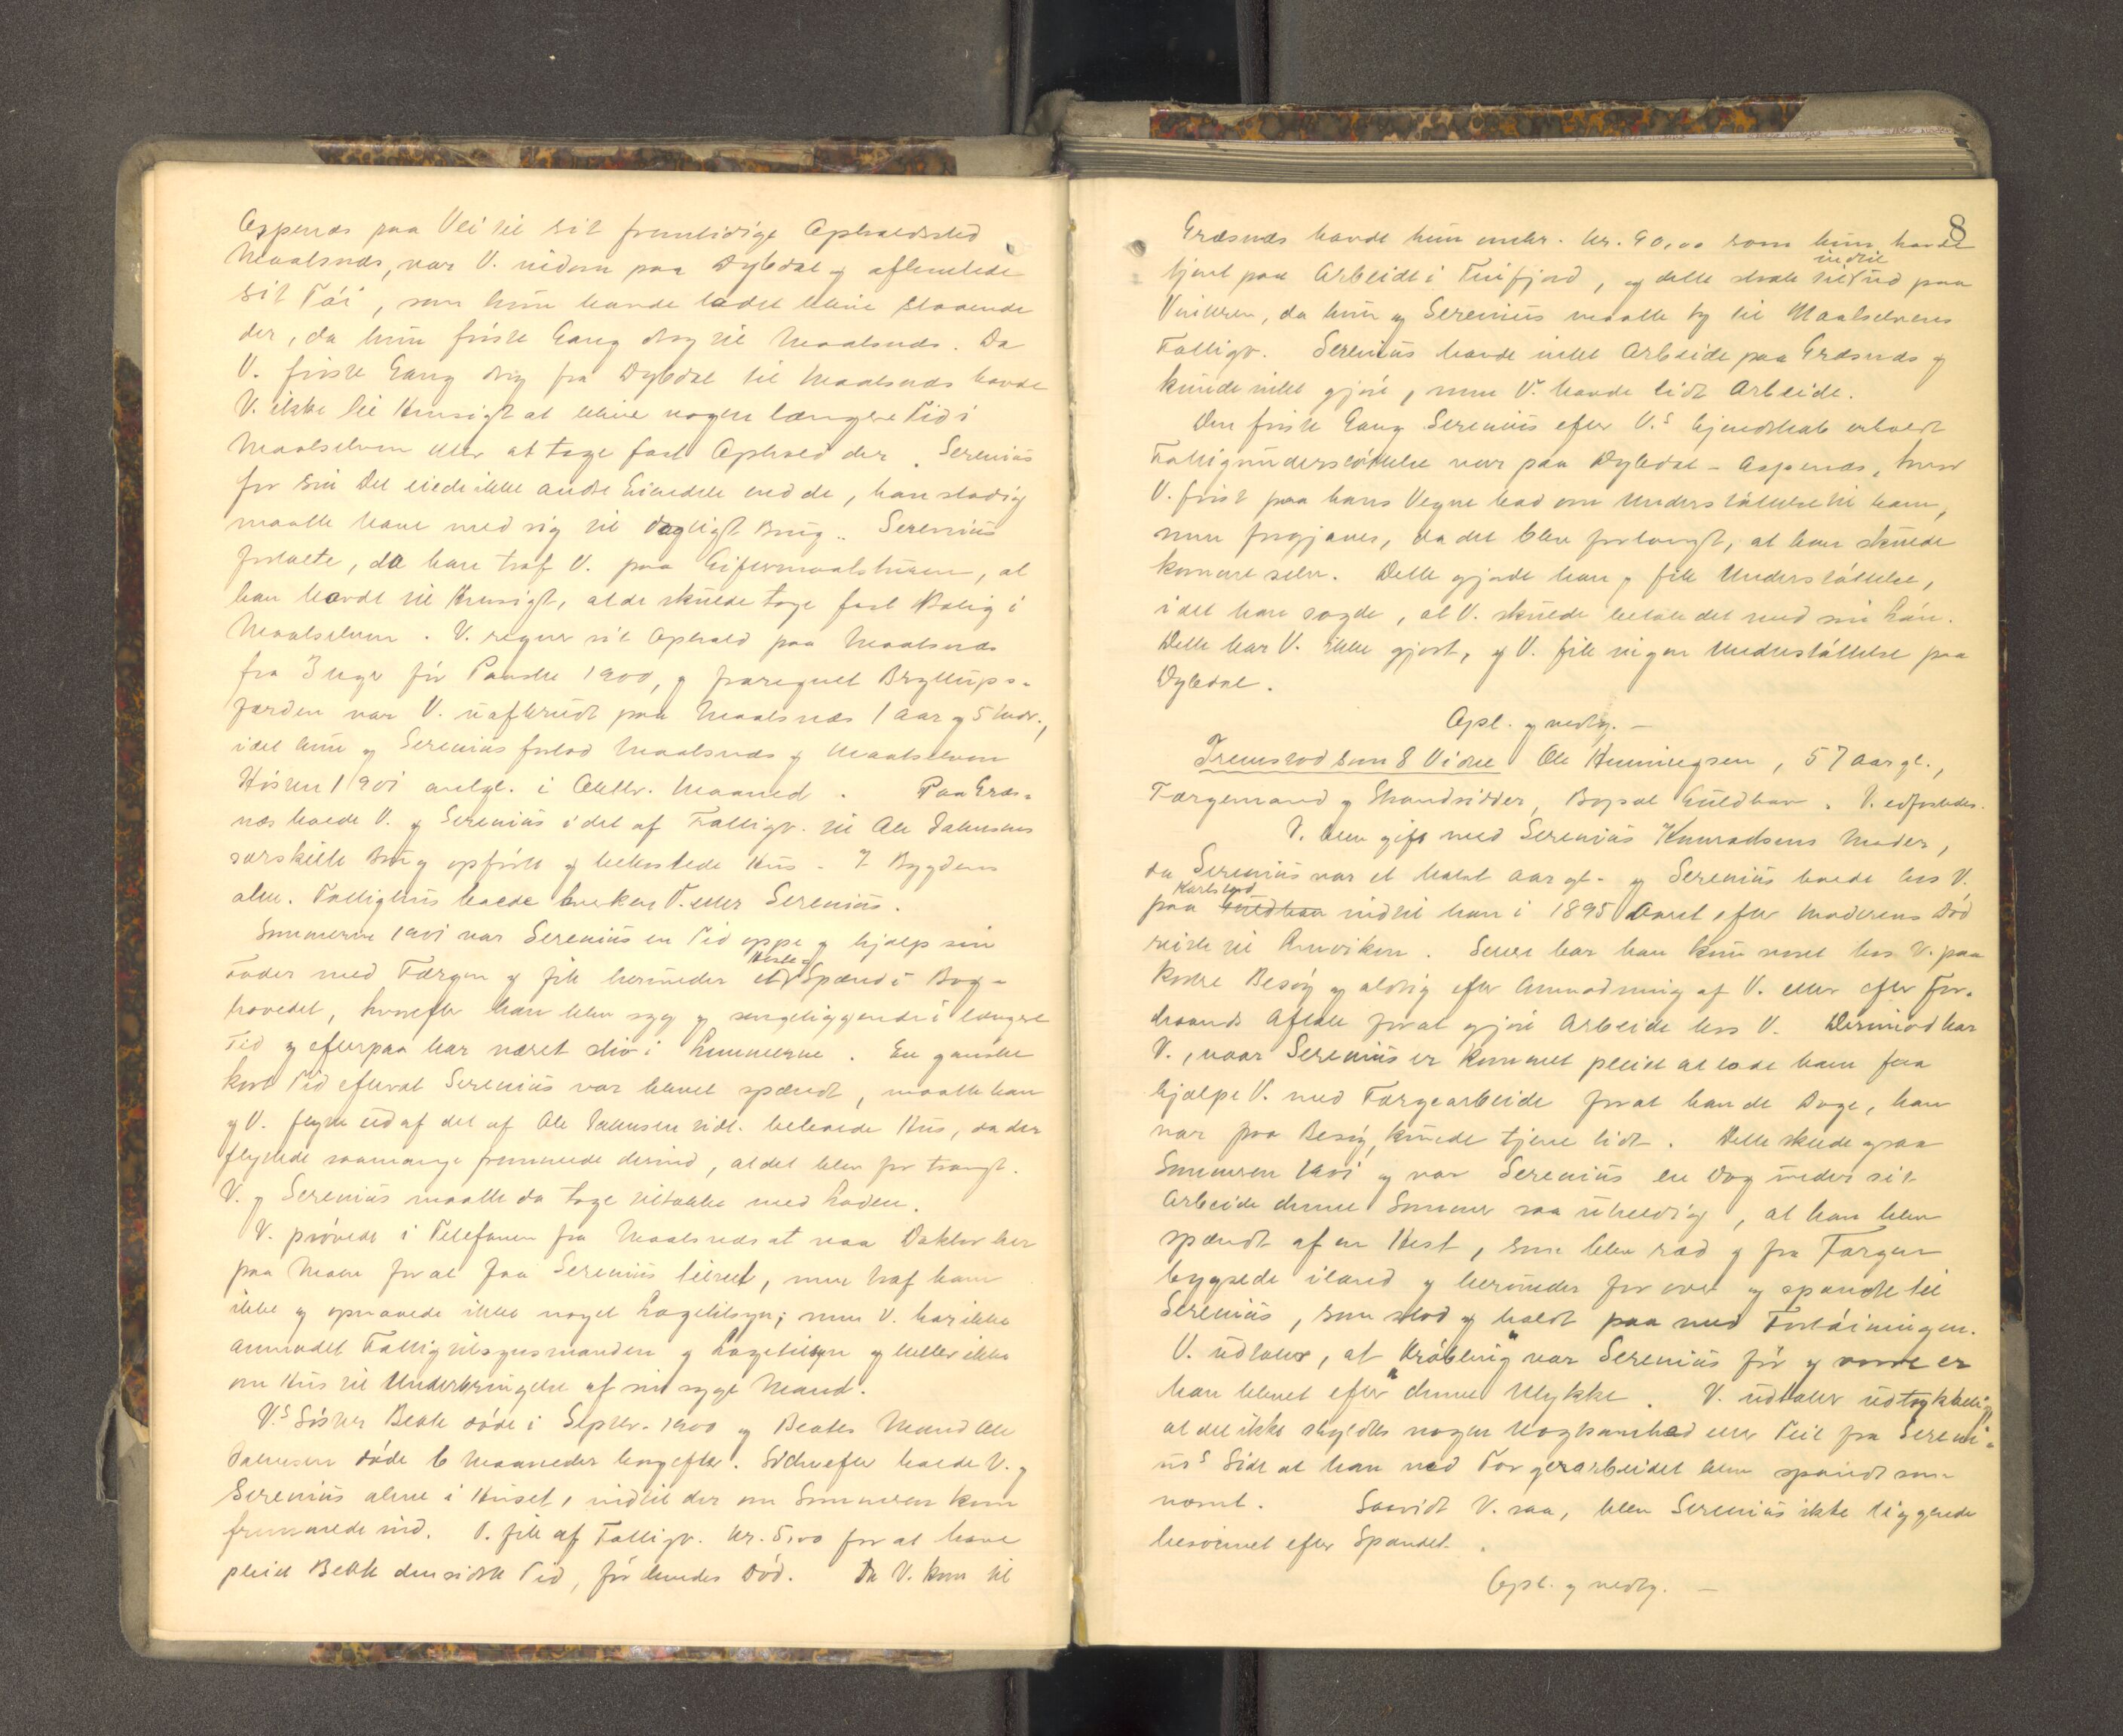 Aspenæs paa Vei til sit fremtidige Opholdssted
Maalsnæs, var V. indom paa Dybdal og afhentede
sit Tøi, som hun havde ladet blive staaende
der, da hun første Gang drog til Maalsnæs. Da
V. første Gang drog fra Dybdal til Maalsnæs havde
V. ikke til Hensigt at blive nogen længere Tid i
Maalselven eller at tage fast Ophold der. Serenius
for sin Del eiede ikke andre Eiendele end de, han stadig
maatte have med sig til dagligt Brug. Serenius
fortalte, da han traf V. paa Giftermaalsturen, at
han havde til Hensigt, at de skulde tage fast Bolig i
Maalselven. V. regner sit Ophold paa Maalsnæs
fra 3 Uger før Paaske 1900, og fraregnet Bryllups-
færden var V. uafbrudt paa Maalsnæs 1 Aar og 5 Mdr.,
idet hun og Serenius forlod Maalsnæs og Maalselven
Høsten 1901 antgl. i Oktbr. Maaned. Paa Græs-
næs boede V. og Serenius i det af Fattigv. til Ole Dahlsens
særskilte Brug opførte og bekostede Hus. I Bygdens
alm. Fattighus boede hverken V. eller Serenius.
Sommeren 1901 var Serenius en Tid oppe og hjalp sin
Fader med Færgen og fik herunder et Heste- Spænd i Bag-
hovedet, hvorefter han blev syg og sengeliggende i længere
Tid og efterpaa har været stiv i Lemmerne. En ganske
kort Tid efterat Serenius var blevet spændt, maatte han
og V. flytte ud af det af Ole Dahlsen tidl. beboede Hus, da der
flyttede saamange fremmede derind, at det blev for trangt.
V. og Serenius maatte da tage tiltakke med Laden.
V. prøvede i Telefonen fra Maalsnæs at naa Doktor her
paa Moen for at faa Serenius tilseet, men traf ham
ikke og opnaaede ikke noget Lægetilsyn; men V. har ikke
anmodet Fattigtilsynsmanden og Lægetilsyn og heller ikke
om Hus til Underbringelse af sin syge Mand.
V.s Søster Beate døde i Septbr. 1900 og Beates Mand Ole
Dahlsen døde 6 Maaneder bagefter. Siden efter boede V. og
Serenius alene i Huset, indtil der om Sommeren kom
fremmede ind. V. fik af Fattigv. Kr. 5,00 for at have
pleiet Beate den sidste Tid, før hendes Død. Da V. kom til
8
Græsnæs havde hun omkr. Kr. 90,00 som hun havde
tjent paa Arbeide i Finfjord, og dette strak til indtil ud paa
Vinteren, da hun og Serenius maatte ty til Maalselvens
Fattigv. Serenius havde intet Arbeide paa Græsnæs og
kunde intet gjøre, men V. havde lidt Arbeide.
Den første Gang Serenius efter V.s Kjendskab erholdt
Fattigunderstøttelse var paa Dybdal - Aspenæs, hvor
V. først paa hans Vegne bad om Understøttelse til ham,
men forgjæves, da det blev forlangt, at han skulde
komme selv. Dette gjorde han og fik Understøttelse,
idet han sagde, at V. skulde betale det med sin Løn.
Dette har V. ikke gjort, og V. fik ingen Understøttelse paa
Dybdal.
Opl. og vedtg. —
Fremstod som 8 Vidne Ole Henningsen, 57 Aar gl.,
Færgemand og Strandsidder, Bopæl Guldhav. V. edfæstedes.
V. blev gift med Serenius Konradsens Moder,
da Serenius var et halvt Aar gl. og Serenius boede hos V.
paa Karlstad indtil han i 1895 Aaret efter Moderens Død
reiste til Annviken. Senere har han kun været hos V. paa
korte Besøg og aldrig efter Anmodning af V. eller efter For-
haands Aftale for at gjøre Arbeide hos V. Derimod har
V., naar Serenius er kommet pleiet at lade ham faa
hjælpe V. med Færgearbeide for at han de Dage, han
var paa Besøg, kunde tjene lidt. Dette skede ogsaa
Sommeren 1901 og var Serenius en Dag under sit
Arbeide denne Sommer saa uheldig, at han blev
spændt af en Hest, som blev ræd og fra Færgen
bygsede iland og herunder for over og spændte til
Serenius, som stod og holdt paa med Fortøiningen.
V. udtaler, at "Krøbling" var Serenius før og værre er
han blevet efter denne Ulykke. V. udtaler udtrykkelig,
at det ikke skyldtes nogen Uagtsomhed eller Feil fra Sereni-
us's Side at han ved Færgerarbeidet blev spændt som
nævnt. Saavidt V. saa, blev Serenius ikke liggende
besvimet efter Spændet.
Opl. og vedtg. —